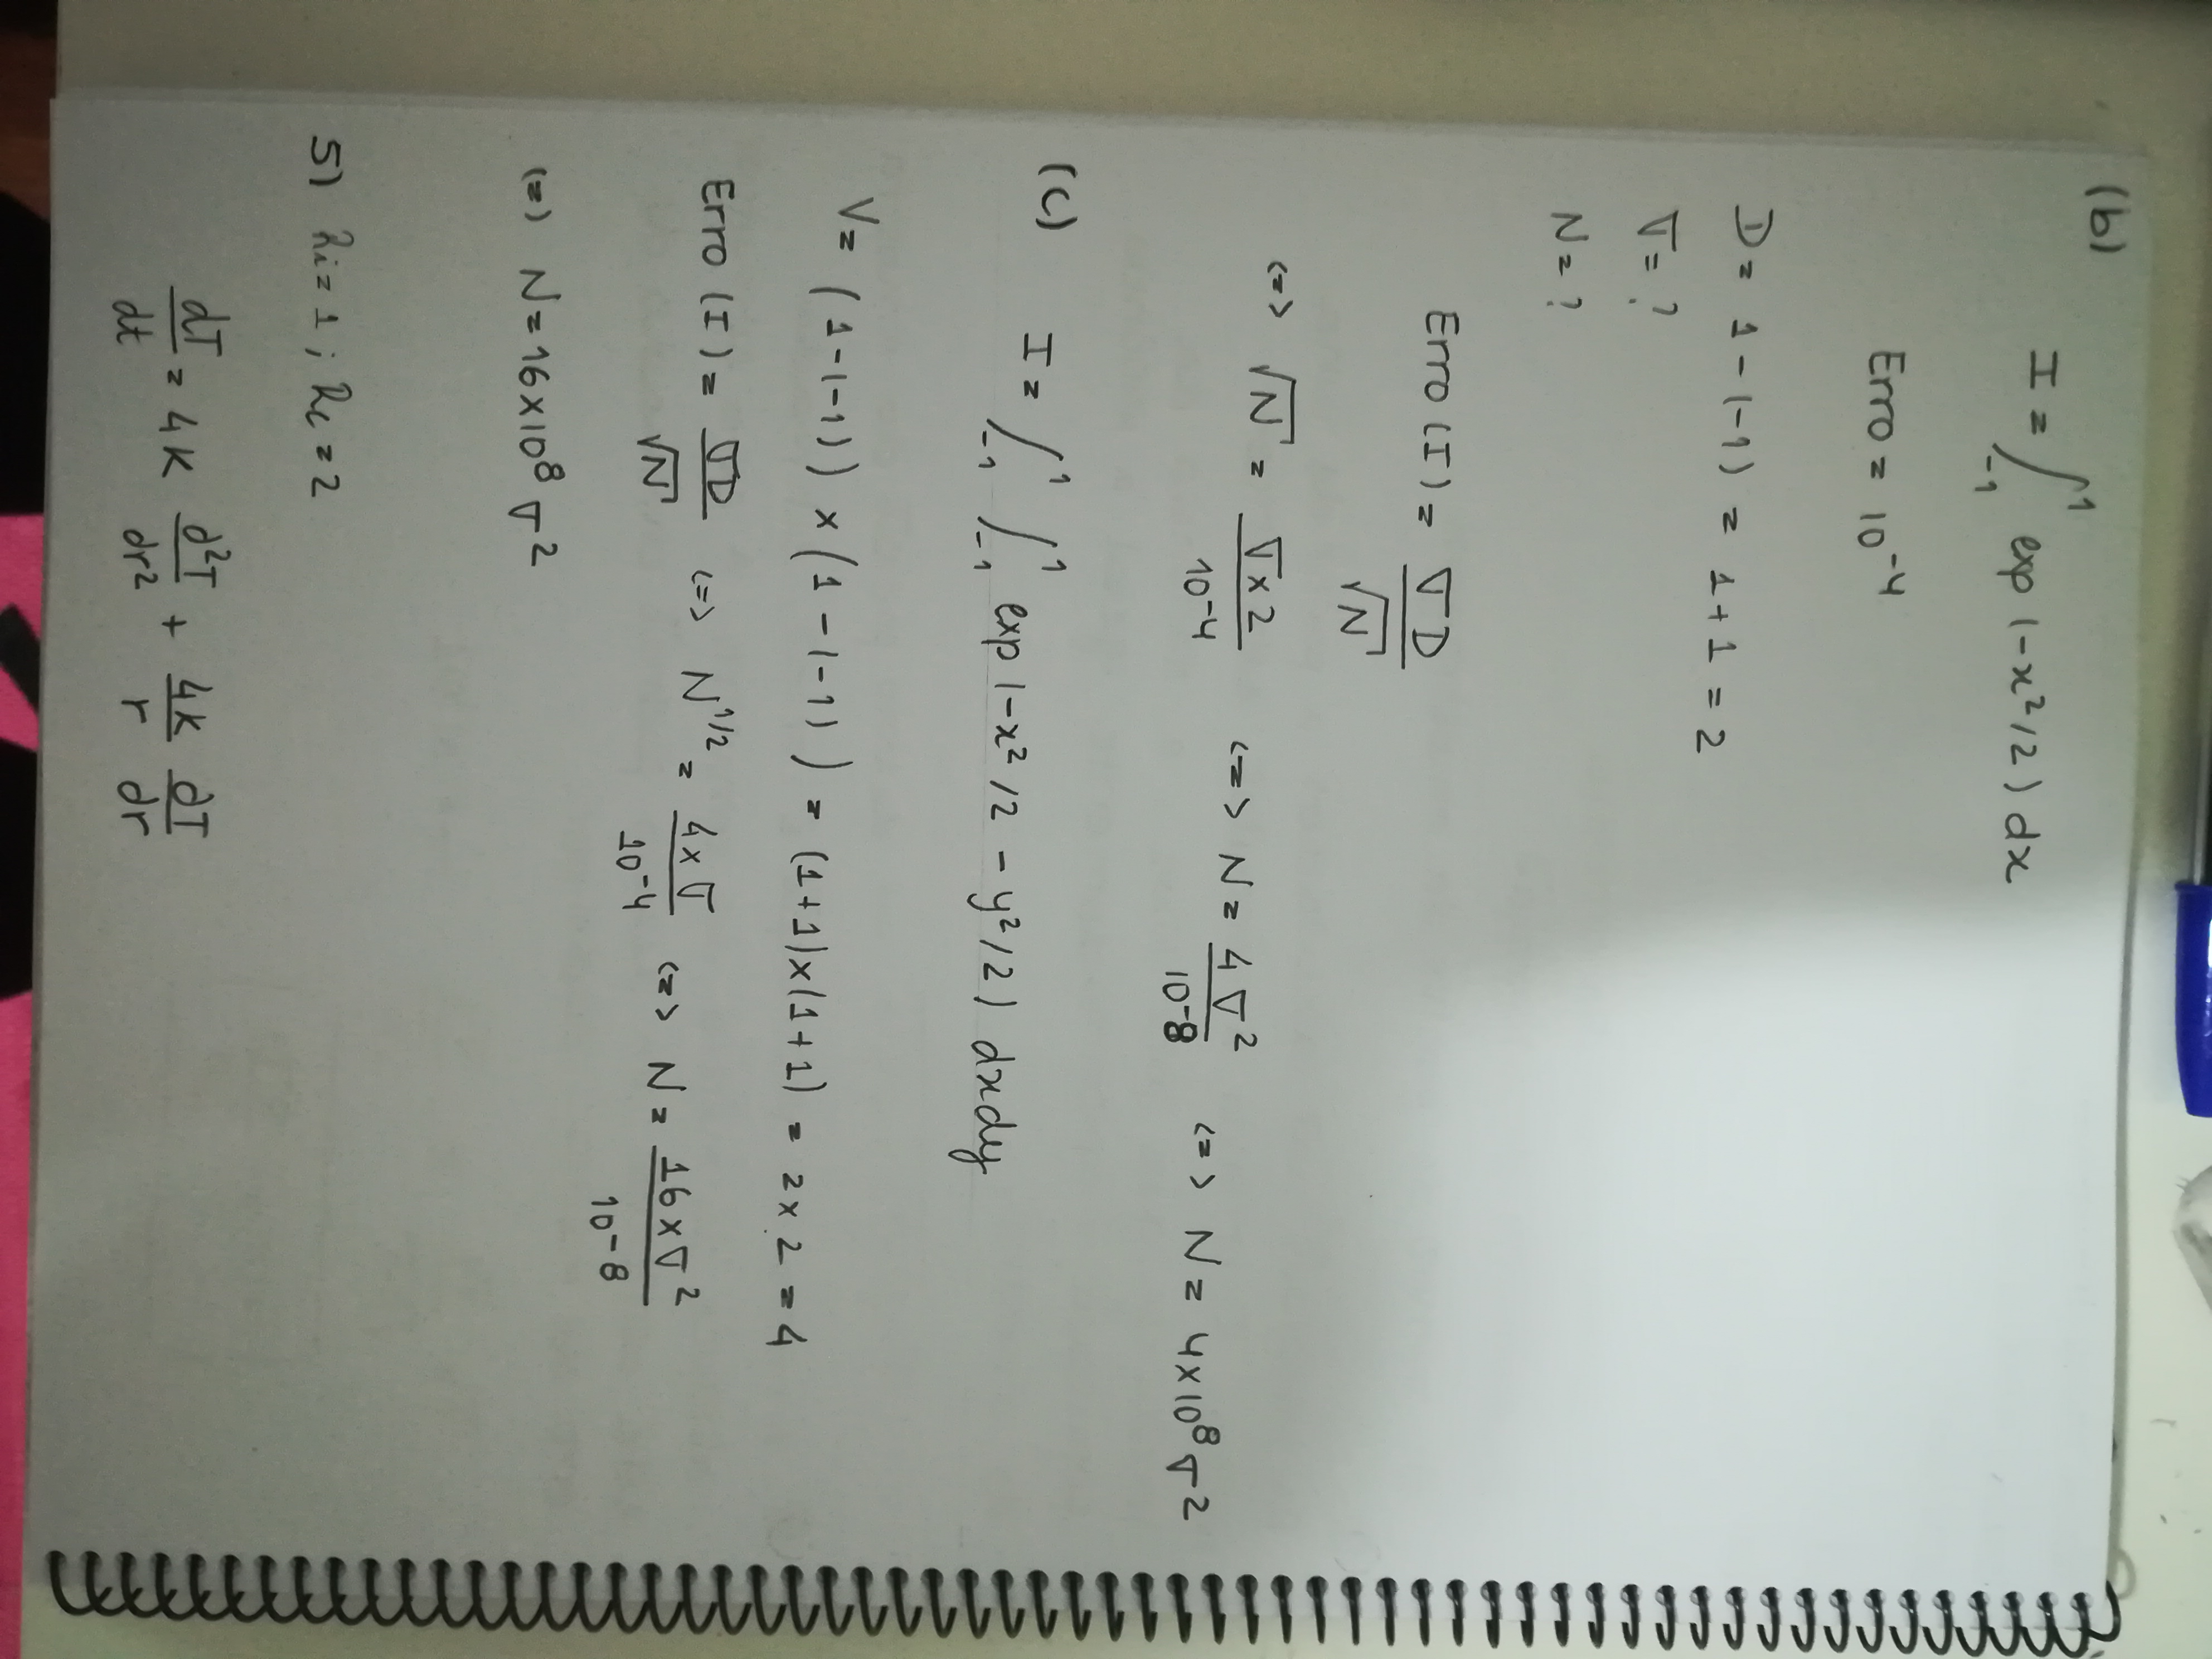 (b)
I = ∫₋₁¹ exp (-x²/2) dx
Erro = 10⁻⁴
D = 1 - (-1) = 1 + 1 = 2
σ = ?
N = ?
Erro (I) = σD / √N
<=> √N = σ x 2 / 10⁻⁴ <=> N = 4σ² / 10⁻⁸ <=> N = 4x10⁸ σ²
(c) I = ∫₋₁¹ ∫₋₁¹ exp (-x²/2 - y²/2) dxdy
V = (1-(-1)) x (1-(-1)) = (1+1)x(1+1) = 2 x 2 = 4
Erro (I) = σD / √N <=> N^1/2 = 4 x σ / 10⁻⁴ <=> N = 16 x σ² / 10⁻⁸
(=) N = 16x10⁸ σ²
5) Ri = 1 ; Re = 2
dT/dt = 4K ∂²T/∂r² + 4K/r ∂T/∂r